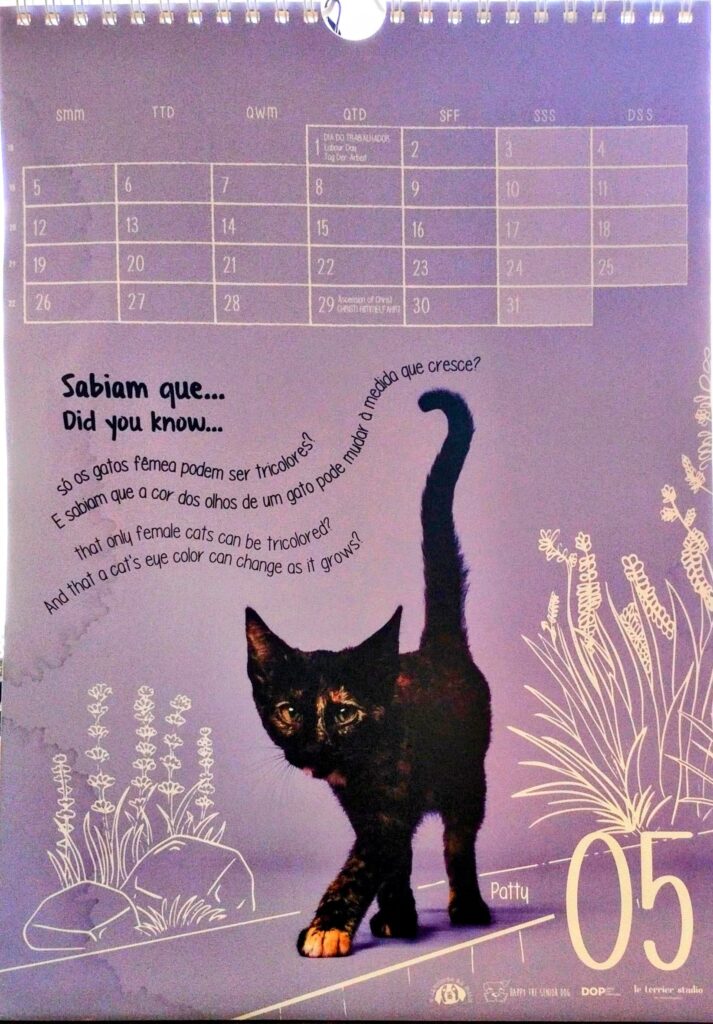 SMM TTD QWM QTD SFF SSS DSS
18 1 DIA DO TRABALHADOR 2 3 4
Labour Day
Tag Der Arbeit
19 5 6 7 8 9 10 11
20 12 13 14 15 16 17 18
21 19 20 21 22 23 24 25
22 26 27 28 29 Ascension of Christ 30 31
CHRISTI HIMMELFAHRT
Sabiam que...
Did you know...
só os gatos fêmea podem ser tricolores?
E sabiam que a cor dos olhos de um gato pode mudar à medida que cresce?
that only female cats can be tricolored?
And that a cat's eye color can change as it grows?
Patty
05
HAPPY THE SENIOR DOG DOP le terrier studio